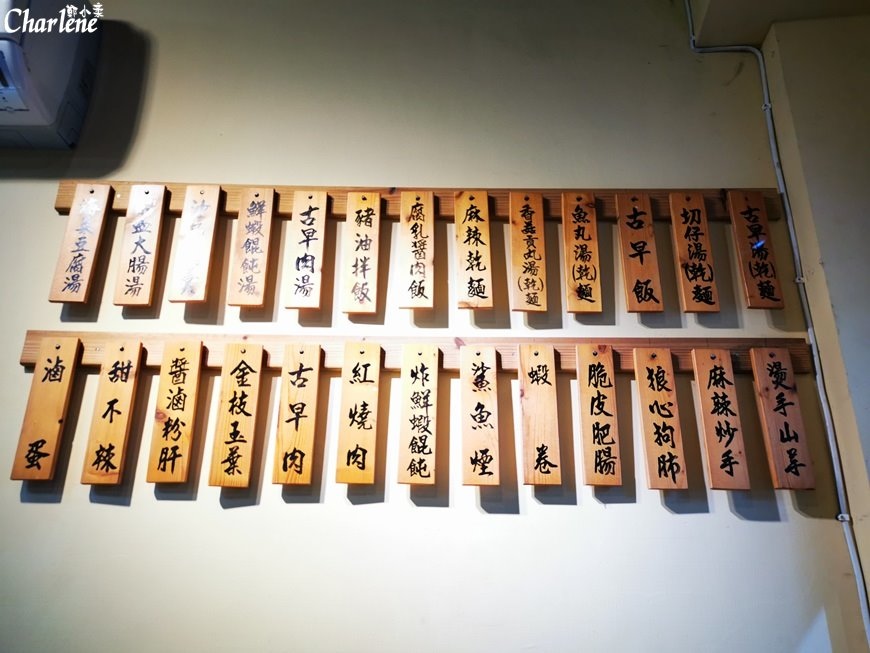 鄭小柔
Charlene
古早湯(乾)麵
切仔湯(乾)麵
古早飯
魚丸湯(乾)麵
香菇貢丸湯(乾)麵
麻辣乾麵
腐乳醬肉飯
豬油拌飯
古早肉湯
鮮蝦餛飩湯
血大腸湯
豆腐湯
燙手山芋
麻辣炒手
狼心狗肺
脆皮肥腸
蝦卷
鯊魚煙
炸鮮蝦餛飩
紅燒肉
古早肉
金枝玉葉
醬滷粉肝
甜不辣
滷蛋